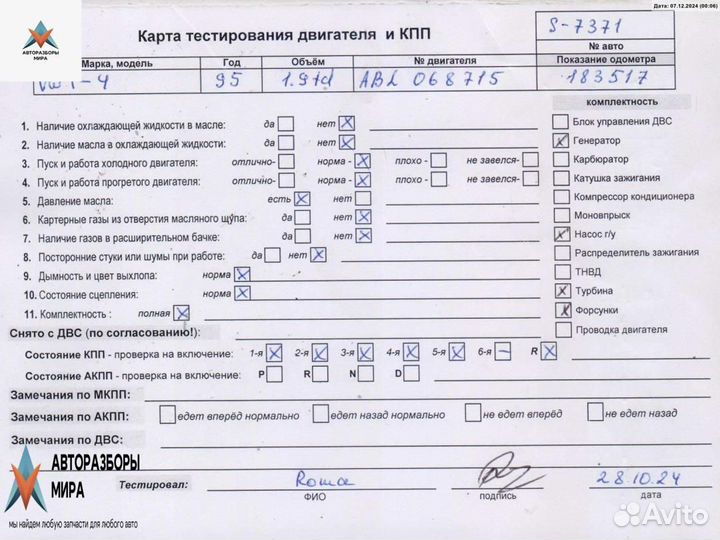 Дата: 07.12.2024 (00:06)
АВТОРАЗБОРЫ
МИРА
Карта тестирования двигателя и КПП
S-7371
№ авто
Марка, модель Год Объём № двигателя Показание одометра
VW T-4 95 1.9td ABL 068715 183517
комплектность
1. Наличие охлаждающей жидкости в масле: да нет X
2. Наличие масла в охлаждающей жидкости: да нет X
3. Пуск и работа холодного двигателя: отлично- норма - X плохо - не завелся-
4. Пуск и работа прогретого двигателя: отлично- норма - X плохо - не завелся-
5. Давление масла: есть X нет
6. Картерные газы из отверстия масляного щупа: да нет X
7. Наличие газов в расширительном бачке: да нет X
8. Посторонние стуки или шумы при работе: да нет X
9. Дымность и цвет выхлопа: норма X
10. Состояние сцепления: норма X
11. Комплектность : полная X
Блок управления ДВС
X Генератор
Карбюратор
Катушка зажигания
Компрессор кондиционера
Моновпрыск
X Насос г/у
Распределитель зажигания
ТНВД
X Турбина
X Форсунки
Проводка двигателя
Снято с ДВС (по согласованию!):
Состояние КПП - проверка на включение: 1-я X 2-я X 3-я X 4-я X 5-я X 6-я – R X
Состояние АКПП - проверка на включение: P R N D
Замечания по МКПП:
Замечания по АКПП: едет вперёд нормально едет назад нормально не едет вперёд не едет назад
Замечания по ДВС:
АВТОРАЗБОРЫ
МИРА
мы найдем любую запчасти для любого авто
Тестировал: Roma 28.10.24
ФИО подпись дата
Avito